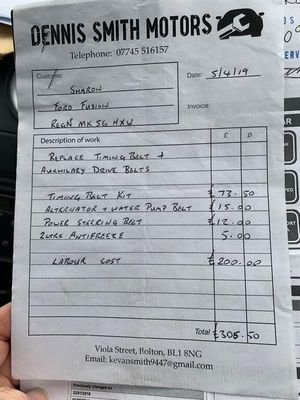 DENNIS SMITH MOTORS
Telephone: 07745 516157
Customer:
Date: 5/4/19
SHARON
FORD FUSION
Invoice:
REGN MK56 HXW
Description of work £ p
REPLACE TIMING BELT +
AUXHILARY DRIVE BELTS
TIMING BELT KIT £73.50
ALTERNATOR + WATER PUMP BELT £15.00
POWER STEERING BELT £12.00
2LTRS ANTIFREEZE 5.00
LABOUR COST £200.00
Total £305.50
Viola Street, Bolton, BL1 8NG
Email: kevansmith9447@gmail.com
Previously changed on